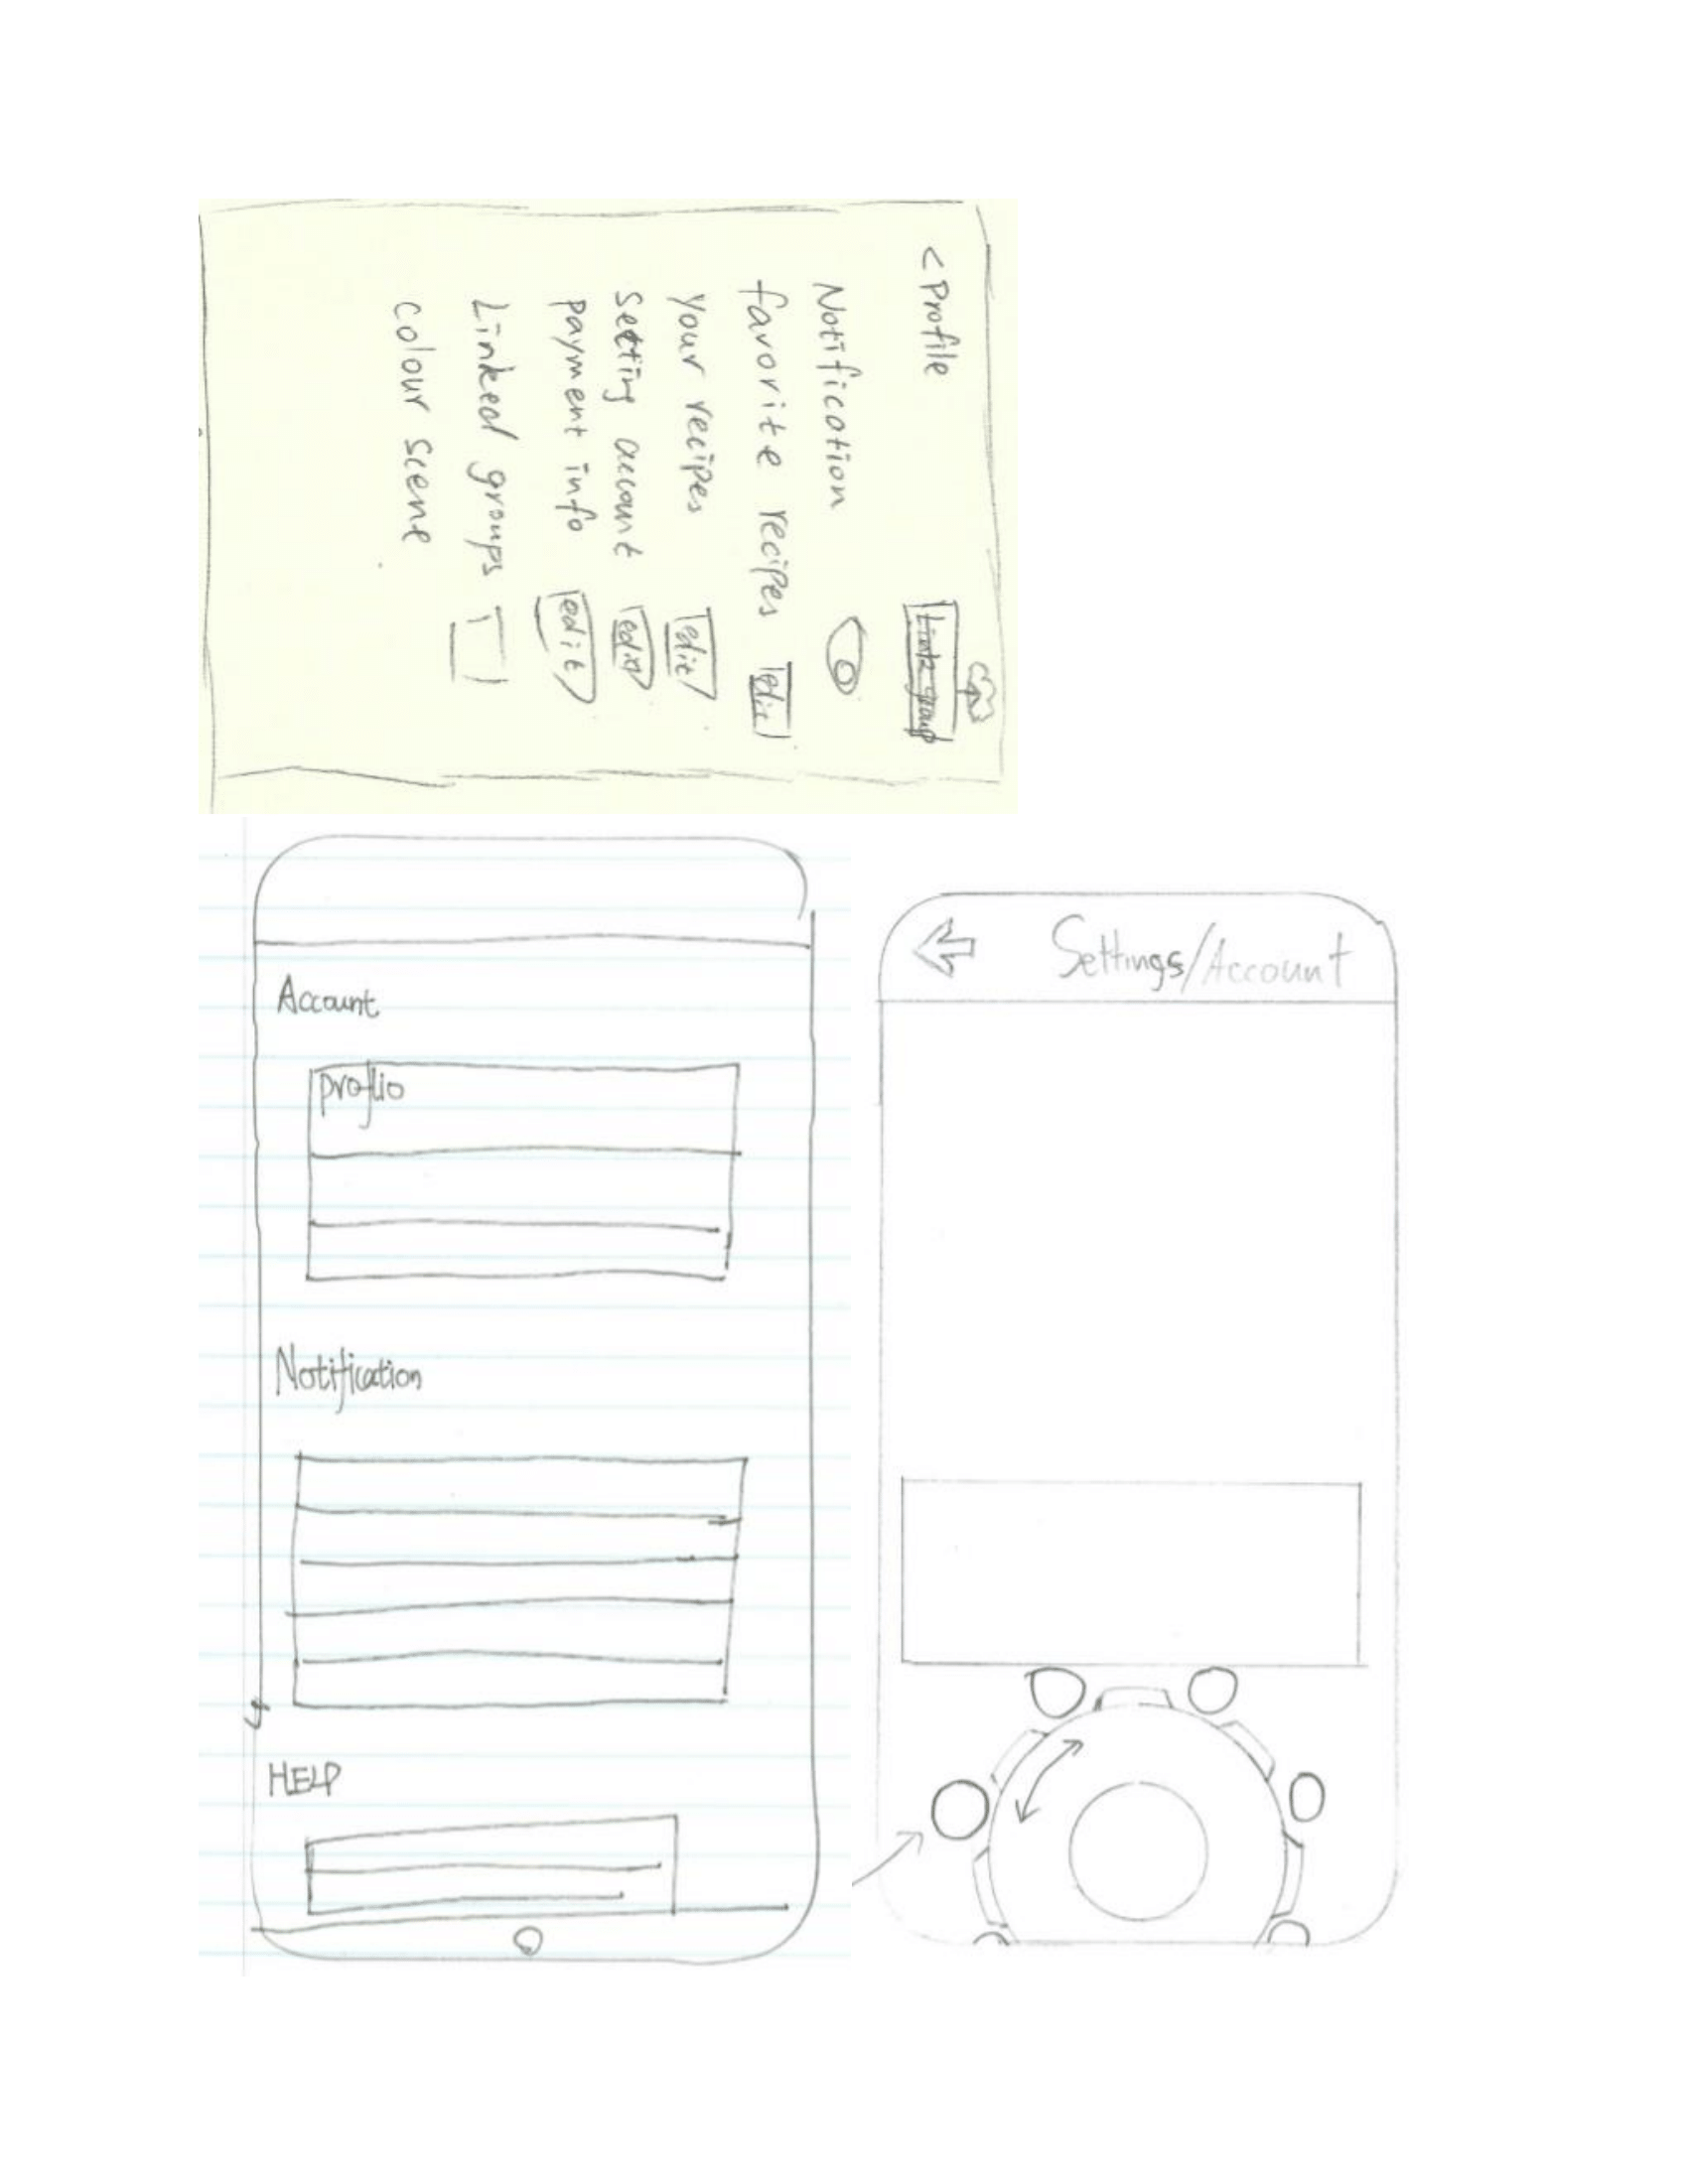 < Profile
Link group
Notification
favorite recipes edit
Your recipes edit
Setting account edit
payment info edit
Linked groups
colour scene
Account
proflio
Notification
HELP
Settings/Account